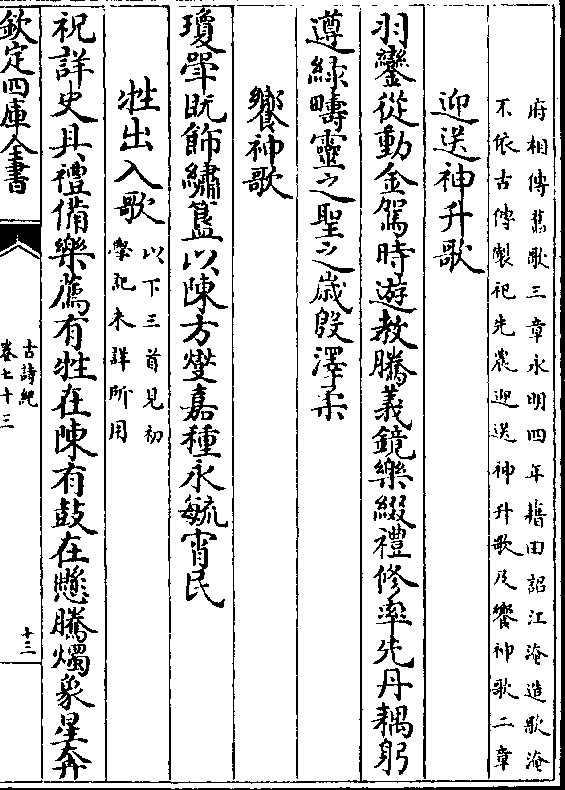 府相傳舊歌三章永明四年耤田詔江淹造歌淹
不依古傳製祀先農迎送神升歌及饗神歌二章
迎送神升歌
羽鑾從動金駕時遊教騰義鏡樂綴禮修率先丹耦躬
遵綠疇靈之聖之歲殷澤柔
饗神歌
瓊斝既飾繡簋以陳方燮嘉種永毓宵民
牲出入歌
以下三首見初
學記未詳所用
祝詳史具禮備樂薦有牲在陳有鼓在懸騰燭象星奔
欽定四庫全書
古詩紀
卷七十三
十三